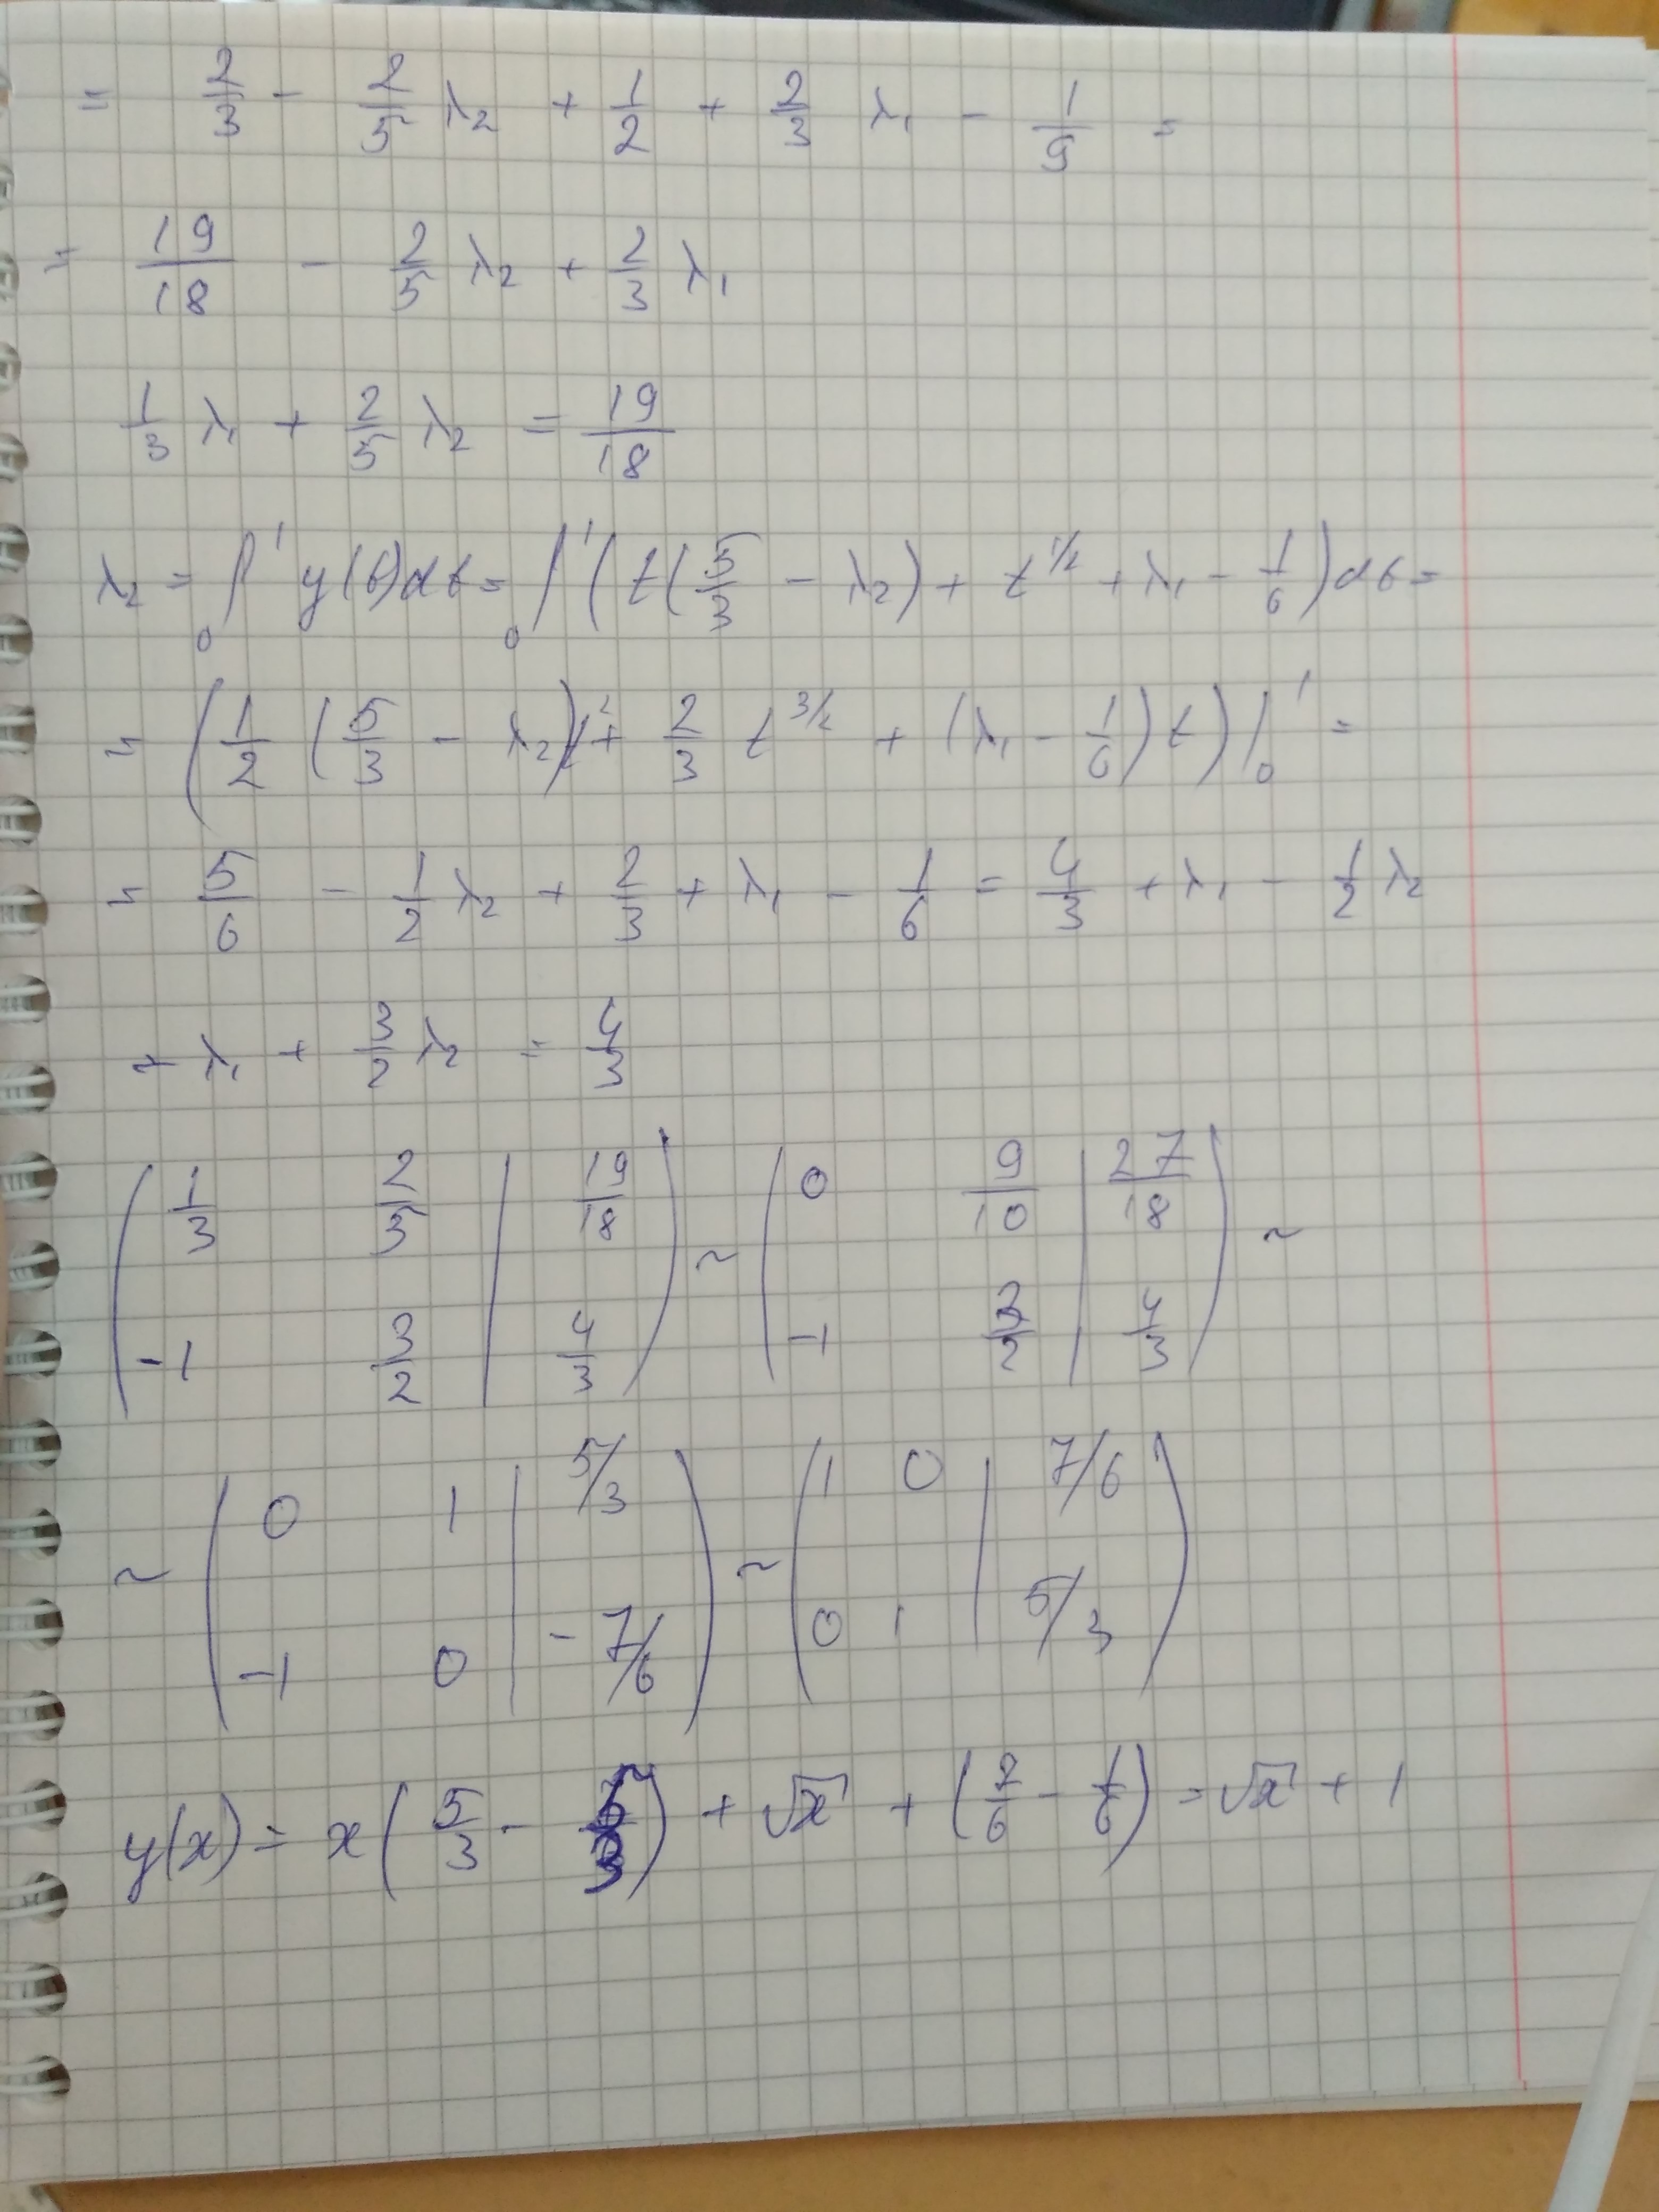 = 2/3 - 2/5 λ₂ + 1/2 + 2/3 λ₁ - 1/9 =
= 19/18 - 2/5 λ₂ + 2/3 λ₁
1/3 λ₁ + 2/5 λ₂ = 19/18
λ₂ = ₀∫¹ y(t)dt = ₀∫¹ (t(5/3 - λ₂) + t^(1/2) + λ₁ - 1/6)dt =
= (1/2 (5/3 - λ₂)t² + 2/3 t^(3/2) + (λ₁ - 1/6)t)|₀¹ =
= 5/6 - 1/2 λ₂ + 2/3 + λ₁ - 1/6 = 4/3 + λ₁ - 1/2 λ₂
- λ₁ + 3/2 λ₂ = 4/3
(1/3 2/5 | 19/18) ~ (0 9/10 | 27/18) ~
(-1 3/2 | 4/3) (-1 3/2 | 4/3)
~ (0 1 | 5/3) ~ (1 0 | 7/6)
(-1 0 | -7/6) (0 1 | 5/3)
y(x) = x(5/3 - 5/3) + √x + (7/6 - 1/6) = √x + 1